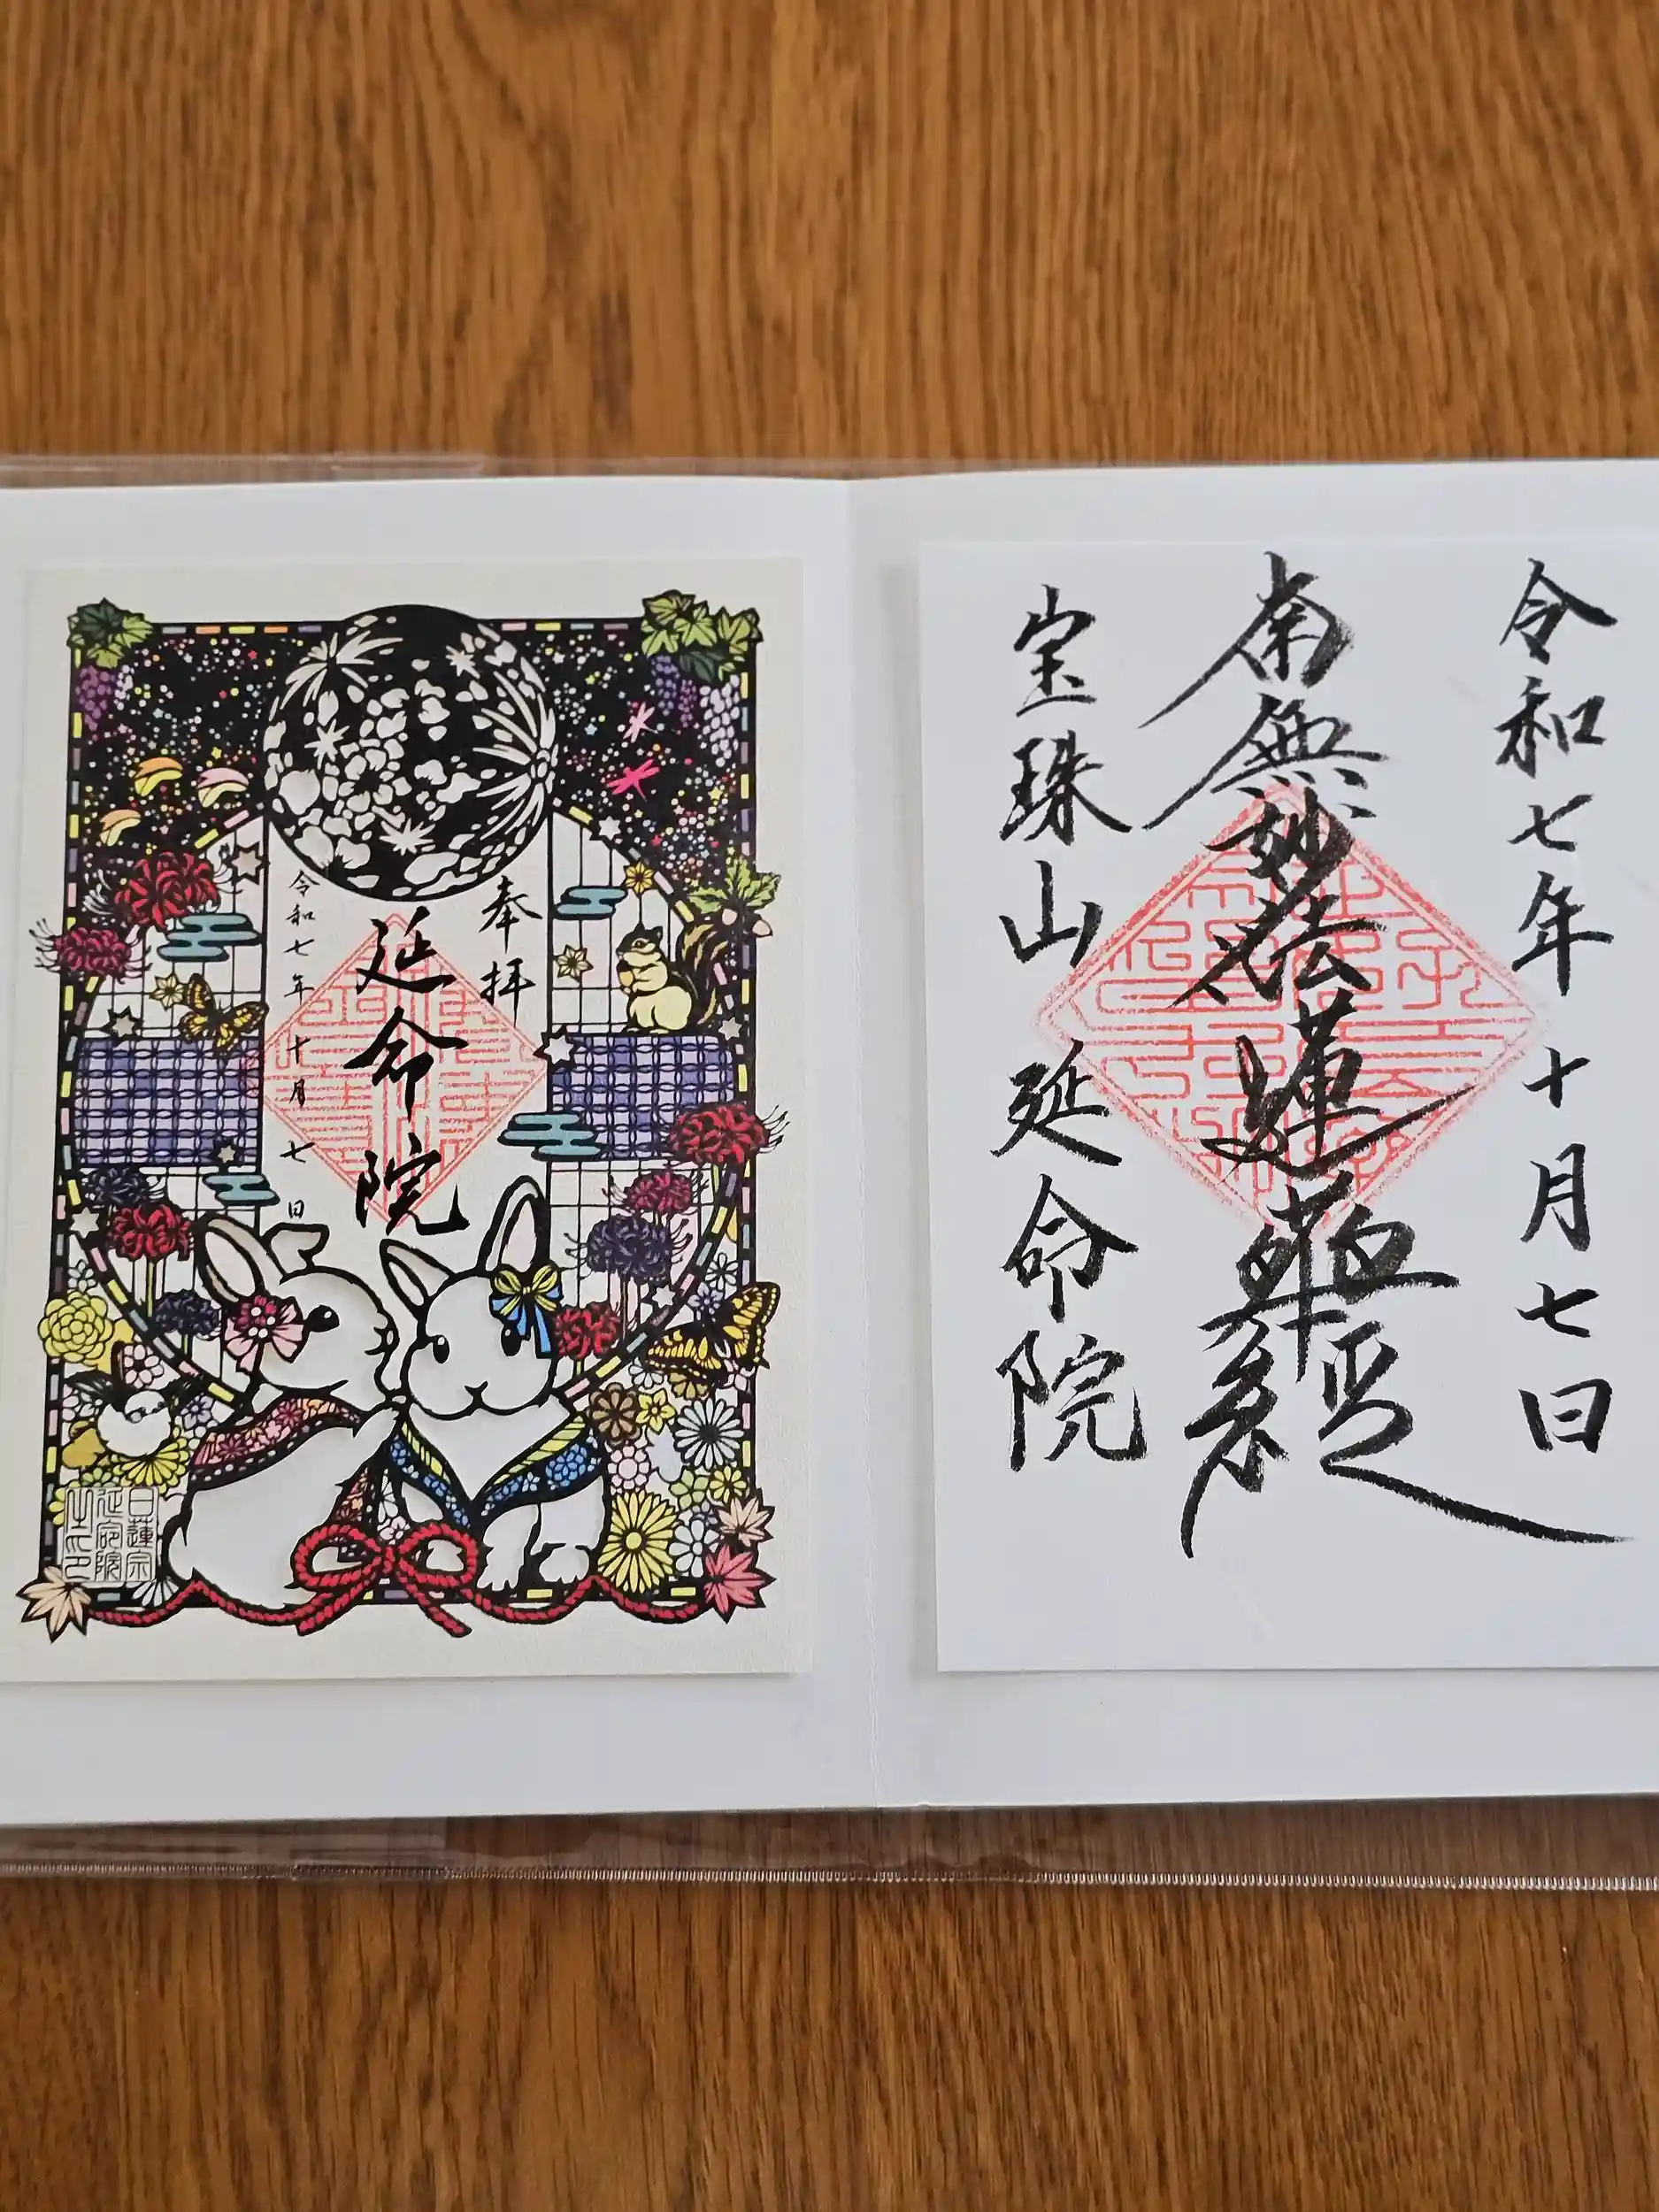 奉拝
延命院
令和七年十月七日
日蓮宗
延命院
之印
令和七年十月七日
南無妙法蓮華經
宝珠山延命院